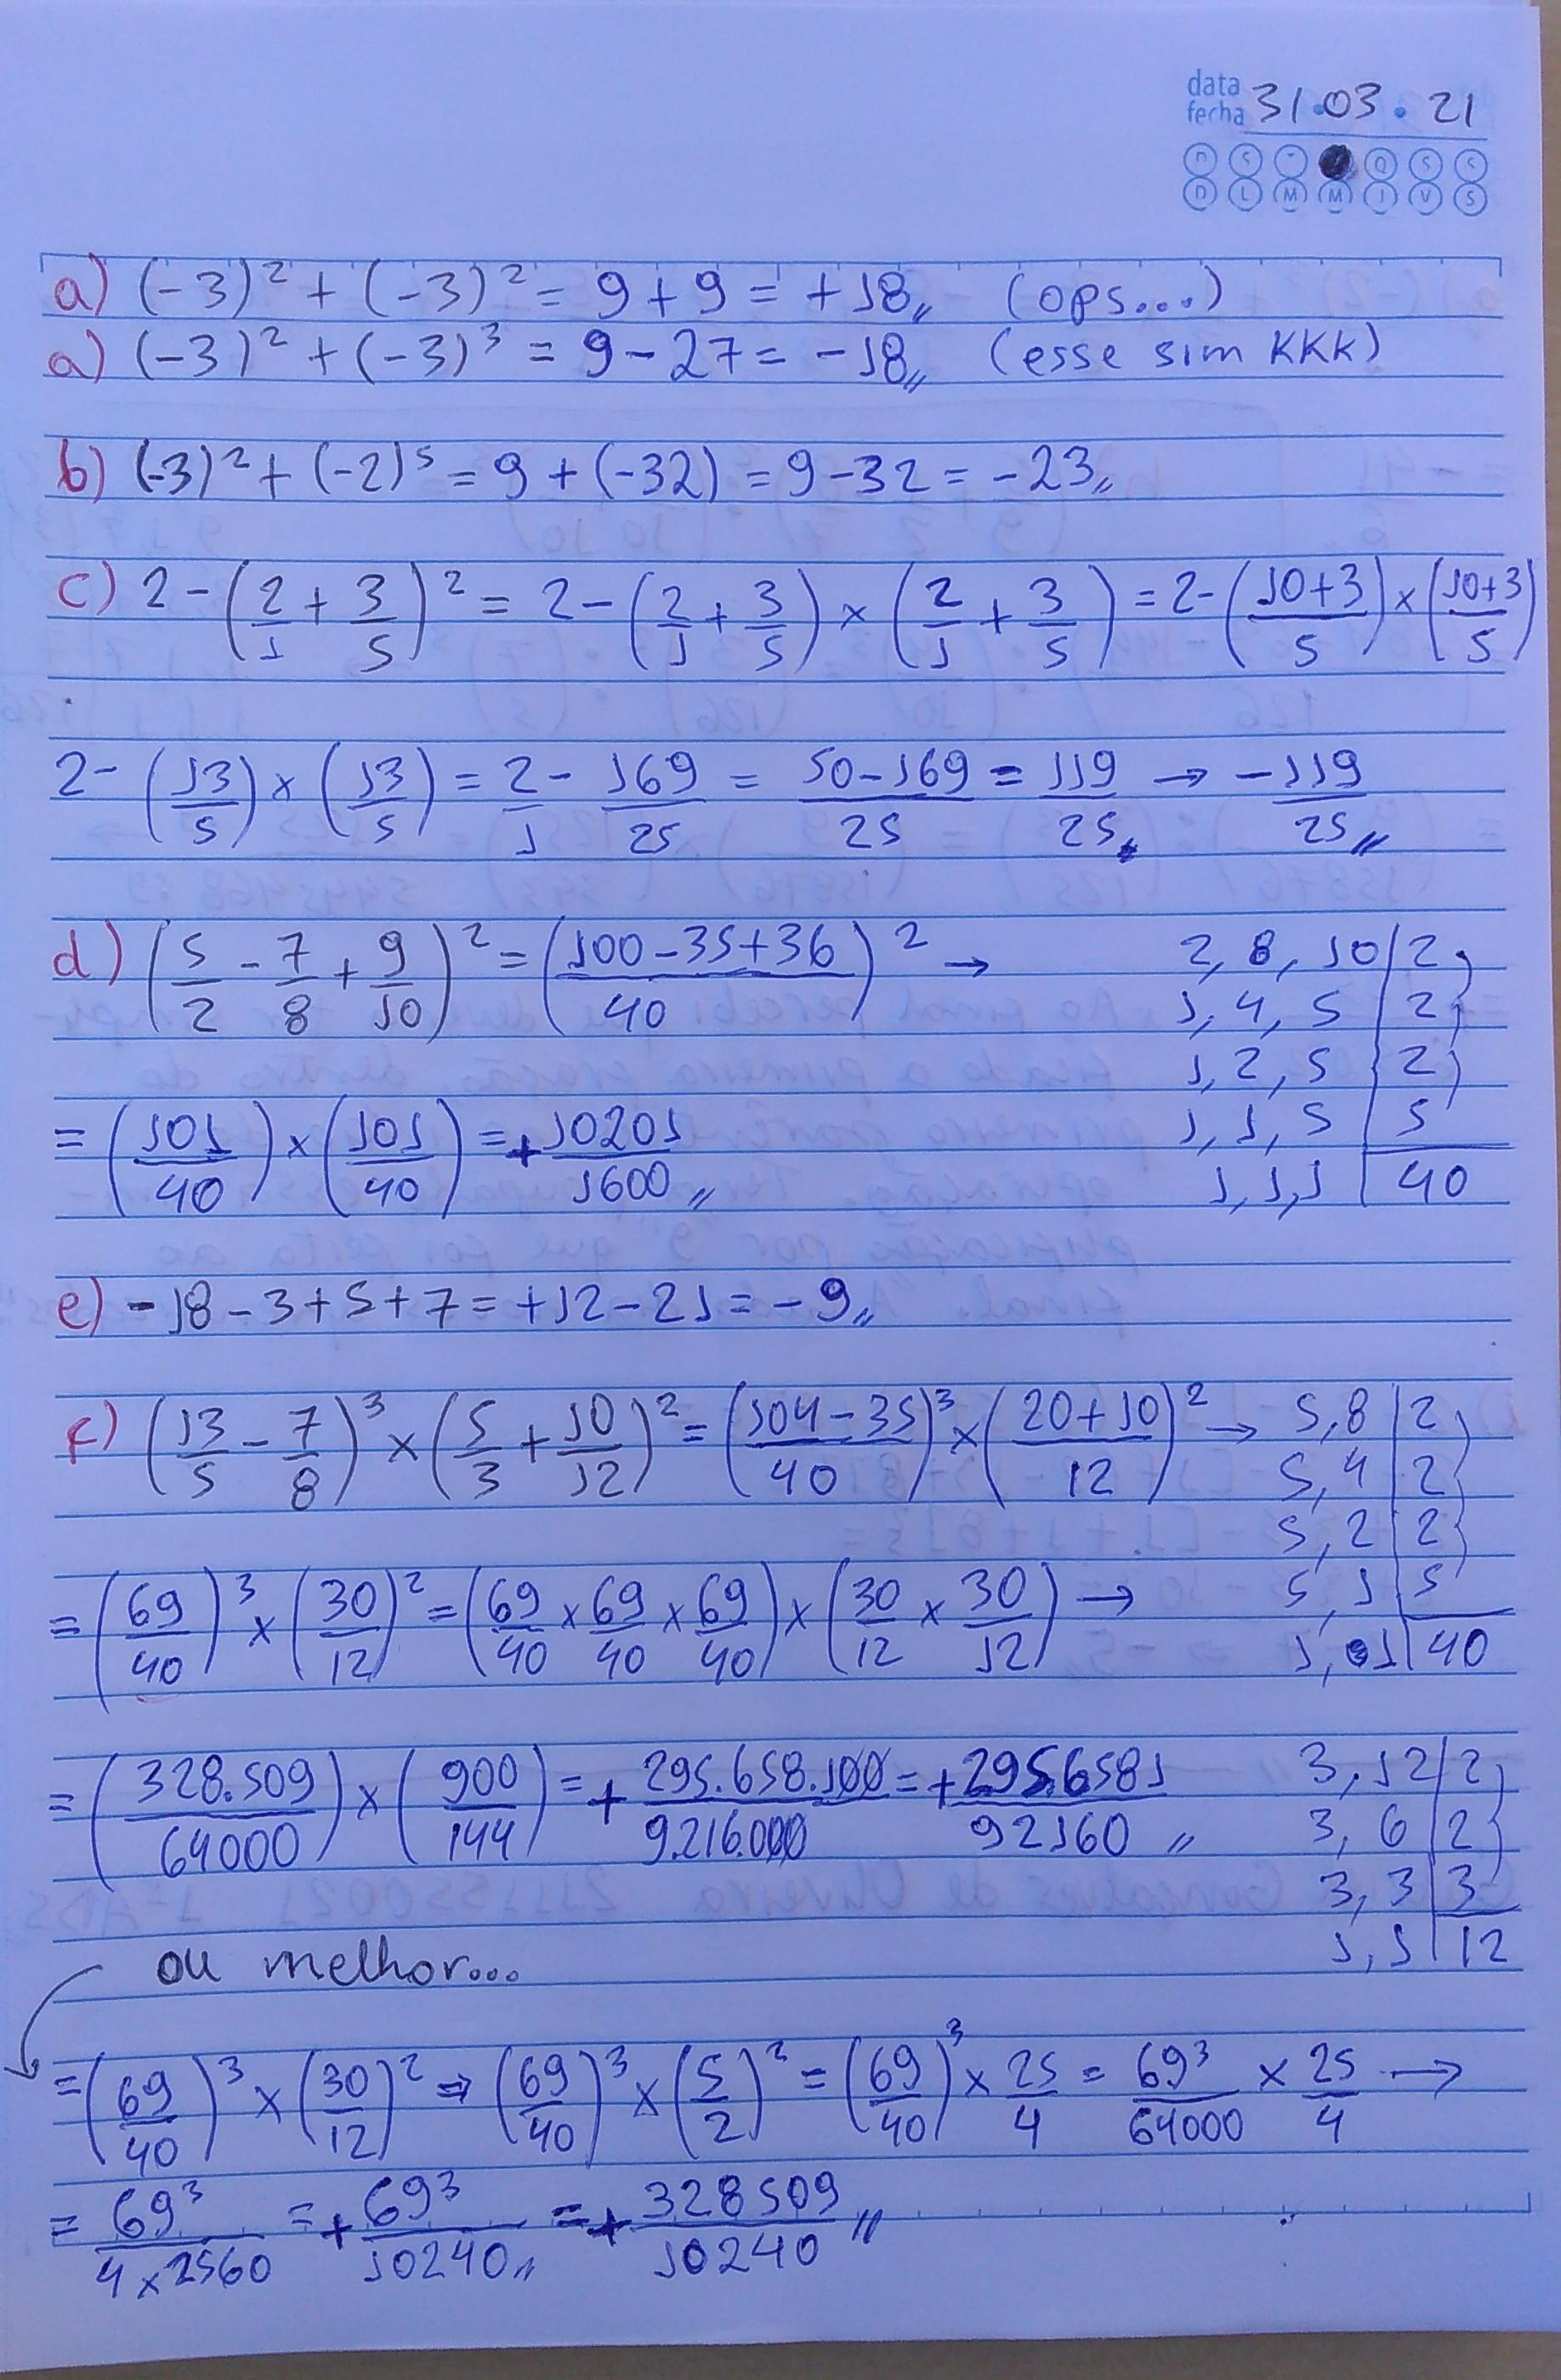 data 31.03.21
fecha
D S T Q S S
D L M M J V S
a) (-3)² + (-3)² = 9 + 9 = +18,, (ops...)
a) (-3)² + (-3)³ = 9 - 27 = -18,, (esse sim KKK)
b) (-3)² + (-2)⁵ = 9 + (-32) = 9 - 32 = -23,,
c) 2 - (2/1 + 3/5)² = 2 - (2/1 + 3/5) × (2/1 + 3/5) = 2 - (10+3/5) × (10+3/5)
2 - (13/5) × (13/5) = 2/1 - 169/25 = 50-169/25 = 119/25 → -119/25,,
d) (5/2 - 7/8 + 9/10)² = (100-35+36/40)² → 2, 8, 10 | 2
1, 4, 5 | 2
1, 2, 5 | 2
= (101/40) × (101/40) = +10201/1600,, 1, 1, 5 | 5
1, 1, 1 | 40
e) -18 - 3 + 5 + 7 = +12 - 21 = -9,,
f) (13/5 - 7/8)³ × (5/3 + 10/12)² = (104-35/40)³ × (20+10/12)² → 5, 8 | 2
5, 4 | 2
5, 2 | 2
= (69/40)³ × (30/12)² = (69/40 × 69/40 × 69/40) × (30/12 × 30/12) → 5, 1 | 5
1, 1 | 40
= (328.509/64000) × (900/144) = +295.658.100/9.216.000 = +295.6581/92160,, 3, 12 | 2
3, 6 | 2
3, 3 | 3
1, 1 | 12
ou melhor...
= (69/40)³ × (30/12)² ⇒ (69/40)³ × (5/2)² = (69/40)³ × 25/4 = 69³/64000 × 25/4 →
= 69³/4×2560 = +69³/10240,, = +328509/10240,,